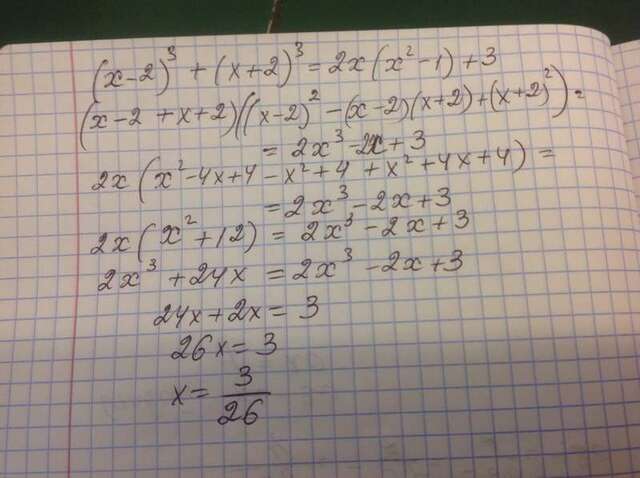 (x-2)³ + (x+2)³ = 2x(x²-1)+3
(x-2+x+2)((x-2)² - (x-2)(x+2)+(x+2)²) =
= 2x³-2x+3
2x(x²-4x+4-x²+4+x²+4x+4) =
= 2x³-2x+3
2x(x²+12) = 2x³-2x+3
2x³+24x = 2x³-2x+3
24x+2x = 3
26x = 3
x = 3/26